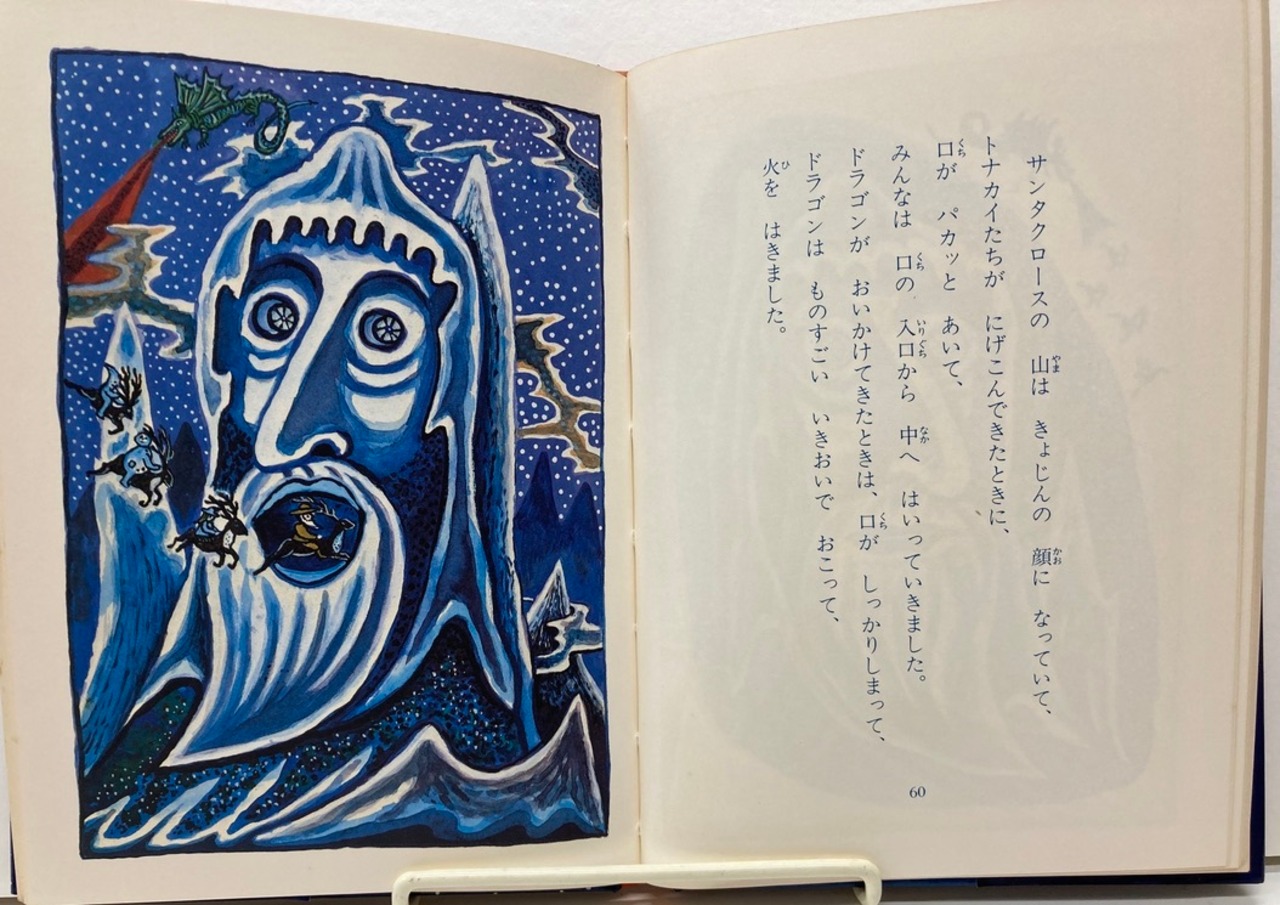 サンタクロースの　山は　きょじんの　顔に　なっていて、
トナカイたちが　にげこんできたときに、
口が　パカッと　あいて、
みんなは　口の　入口から　中へ　はいっていきました。
ドラゴンが　おいかけてきたときは、口が　しっかりしまって、
ドラゴンは　ものすごい　いきおいで　おこって、
火を　はきました。
60